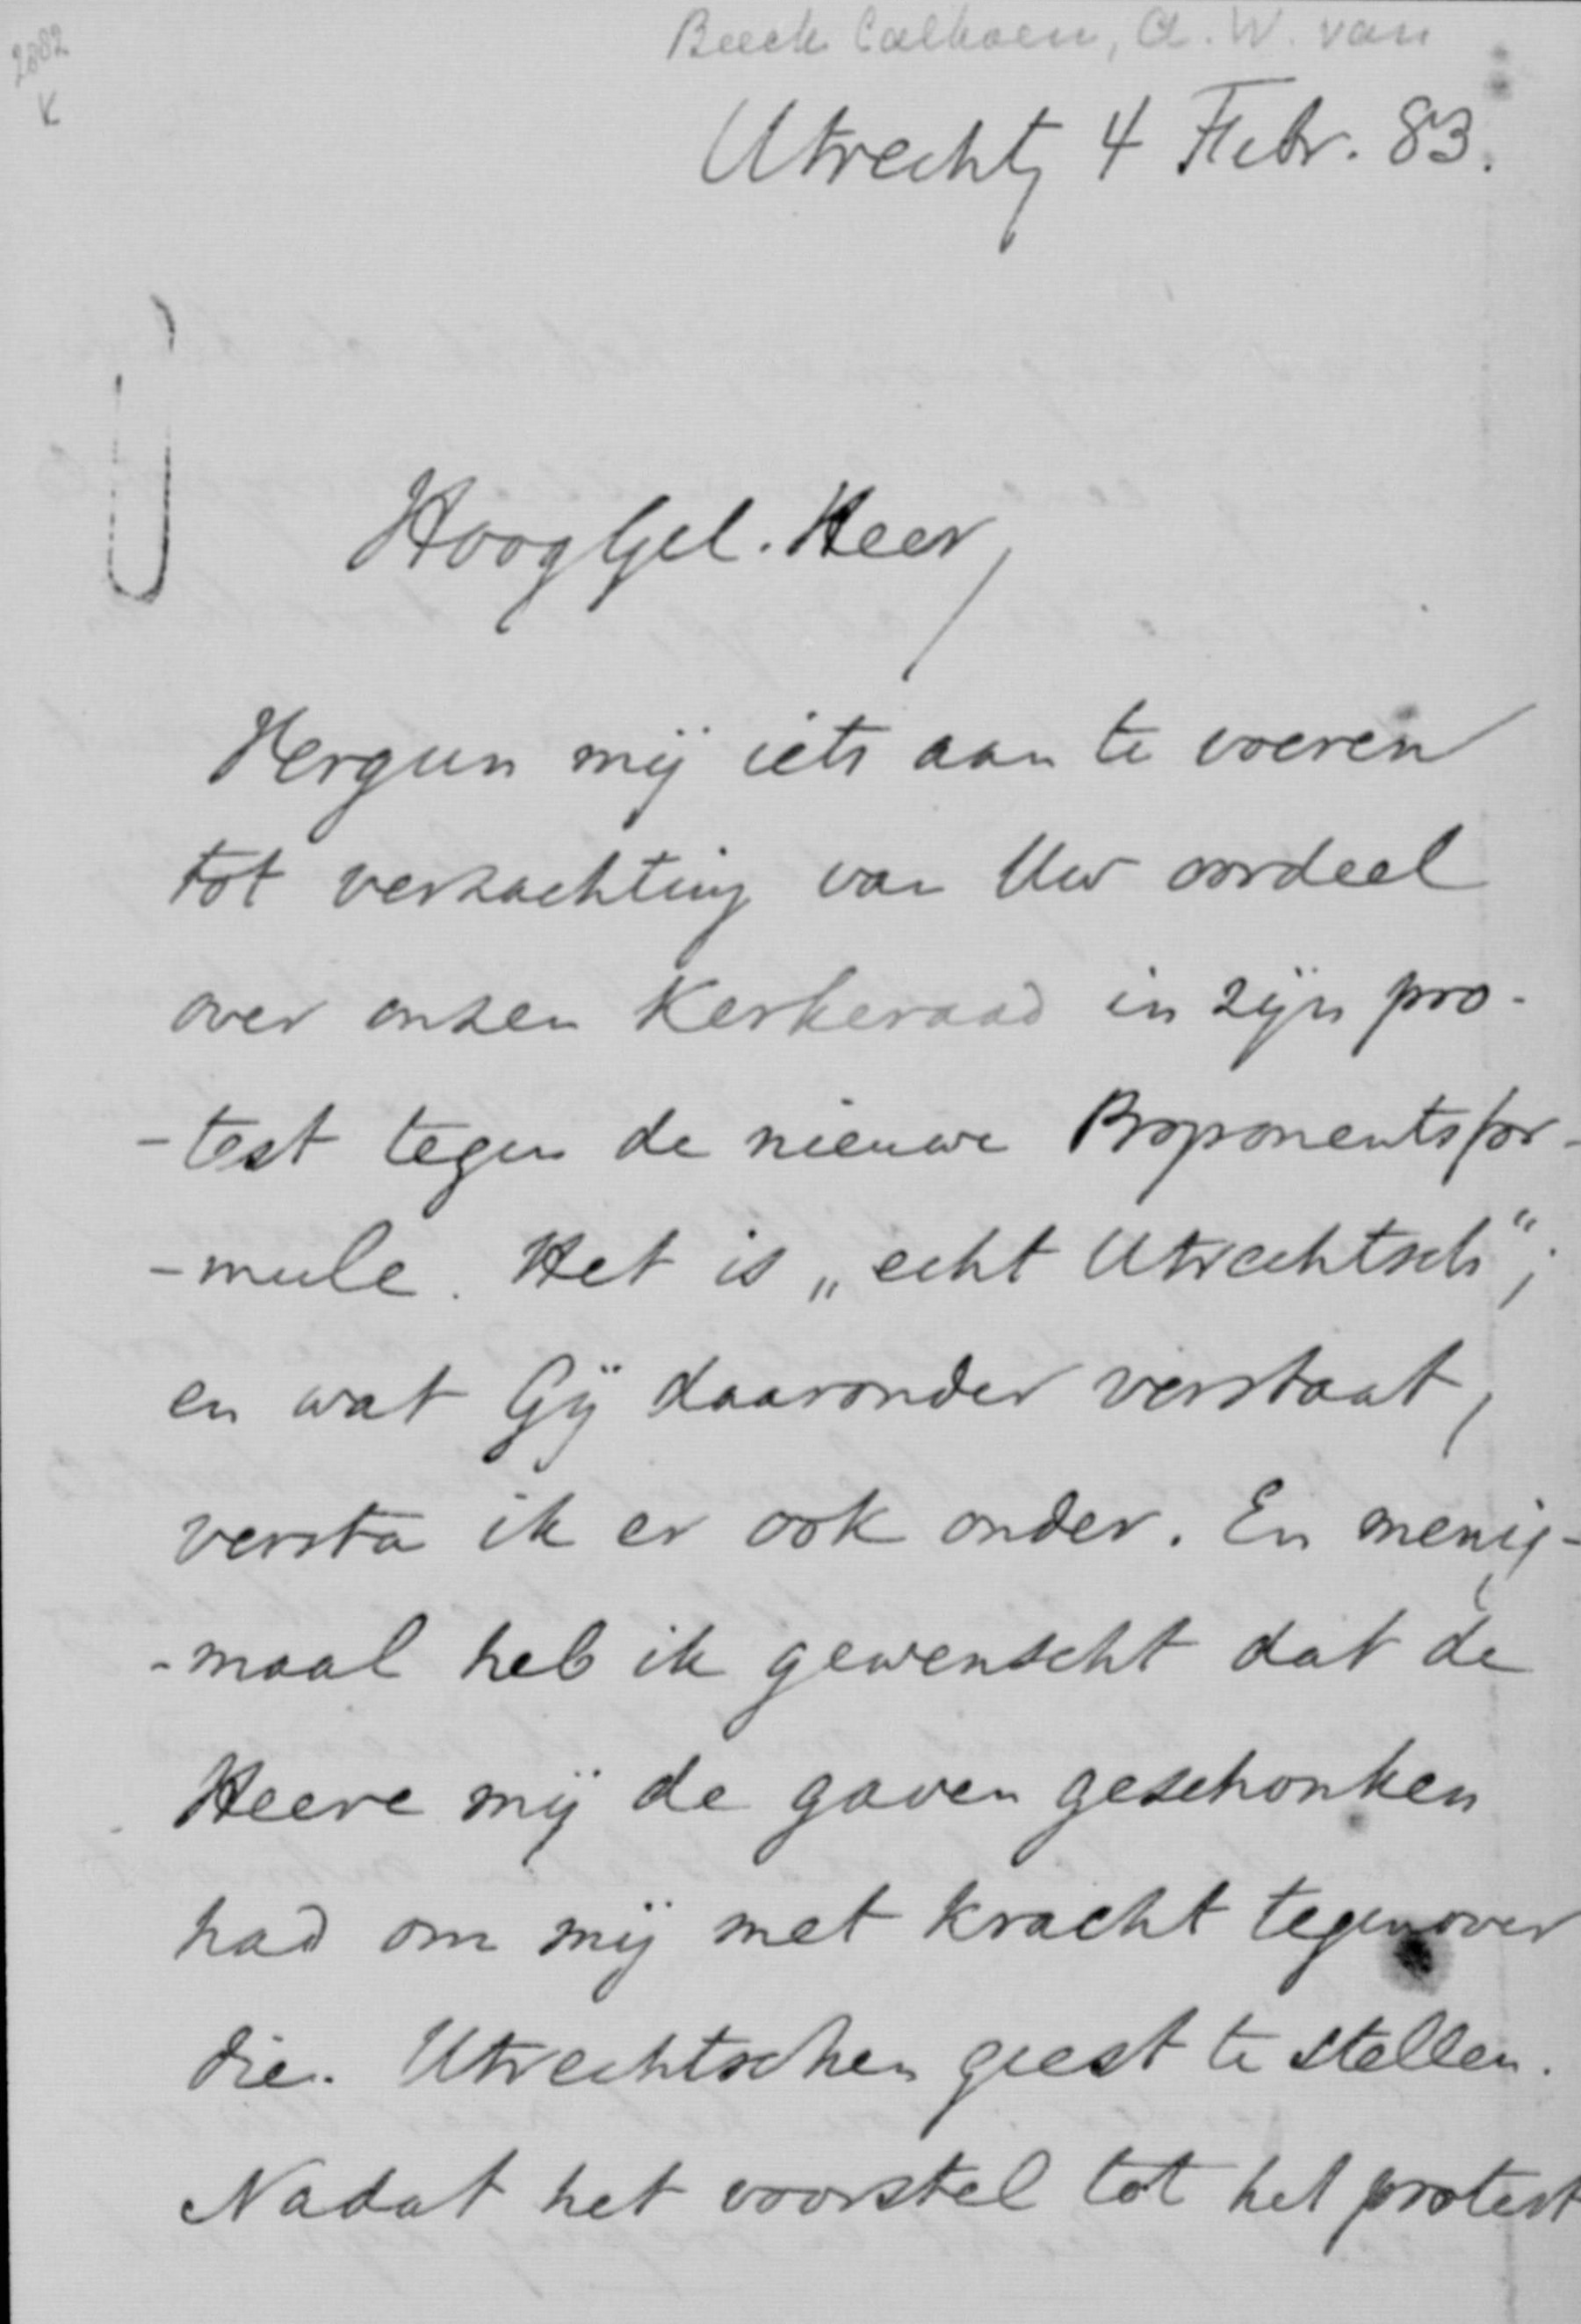 2882
K
Beeck Calkoen, A. W. van
Utrecht, 4 Febr. 83.
HoogGel. Heer,
Vergun mij iets aan te voeren
tot verzachting van Uw oordeel
over onzen Kerkeraad in zijn pro-
-test tegen de nieuwe Proponentsfor-
-mule. Het is „echt Utrechtsch“;
en wat Gij daaronder verstaat,
versta ik er ook onder. En menig-
-maal heb ik gewenscht dat de
Heere mij de gaven geschonken
had om mij met kracht tegenover
dien Utrechtschen geest te stellen.
Nadat het voorstel tot het protest